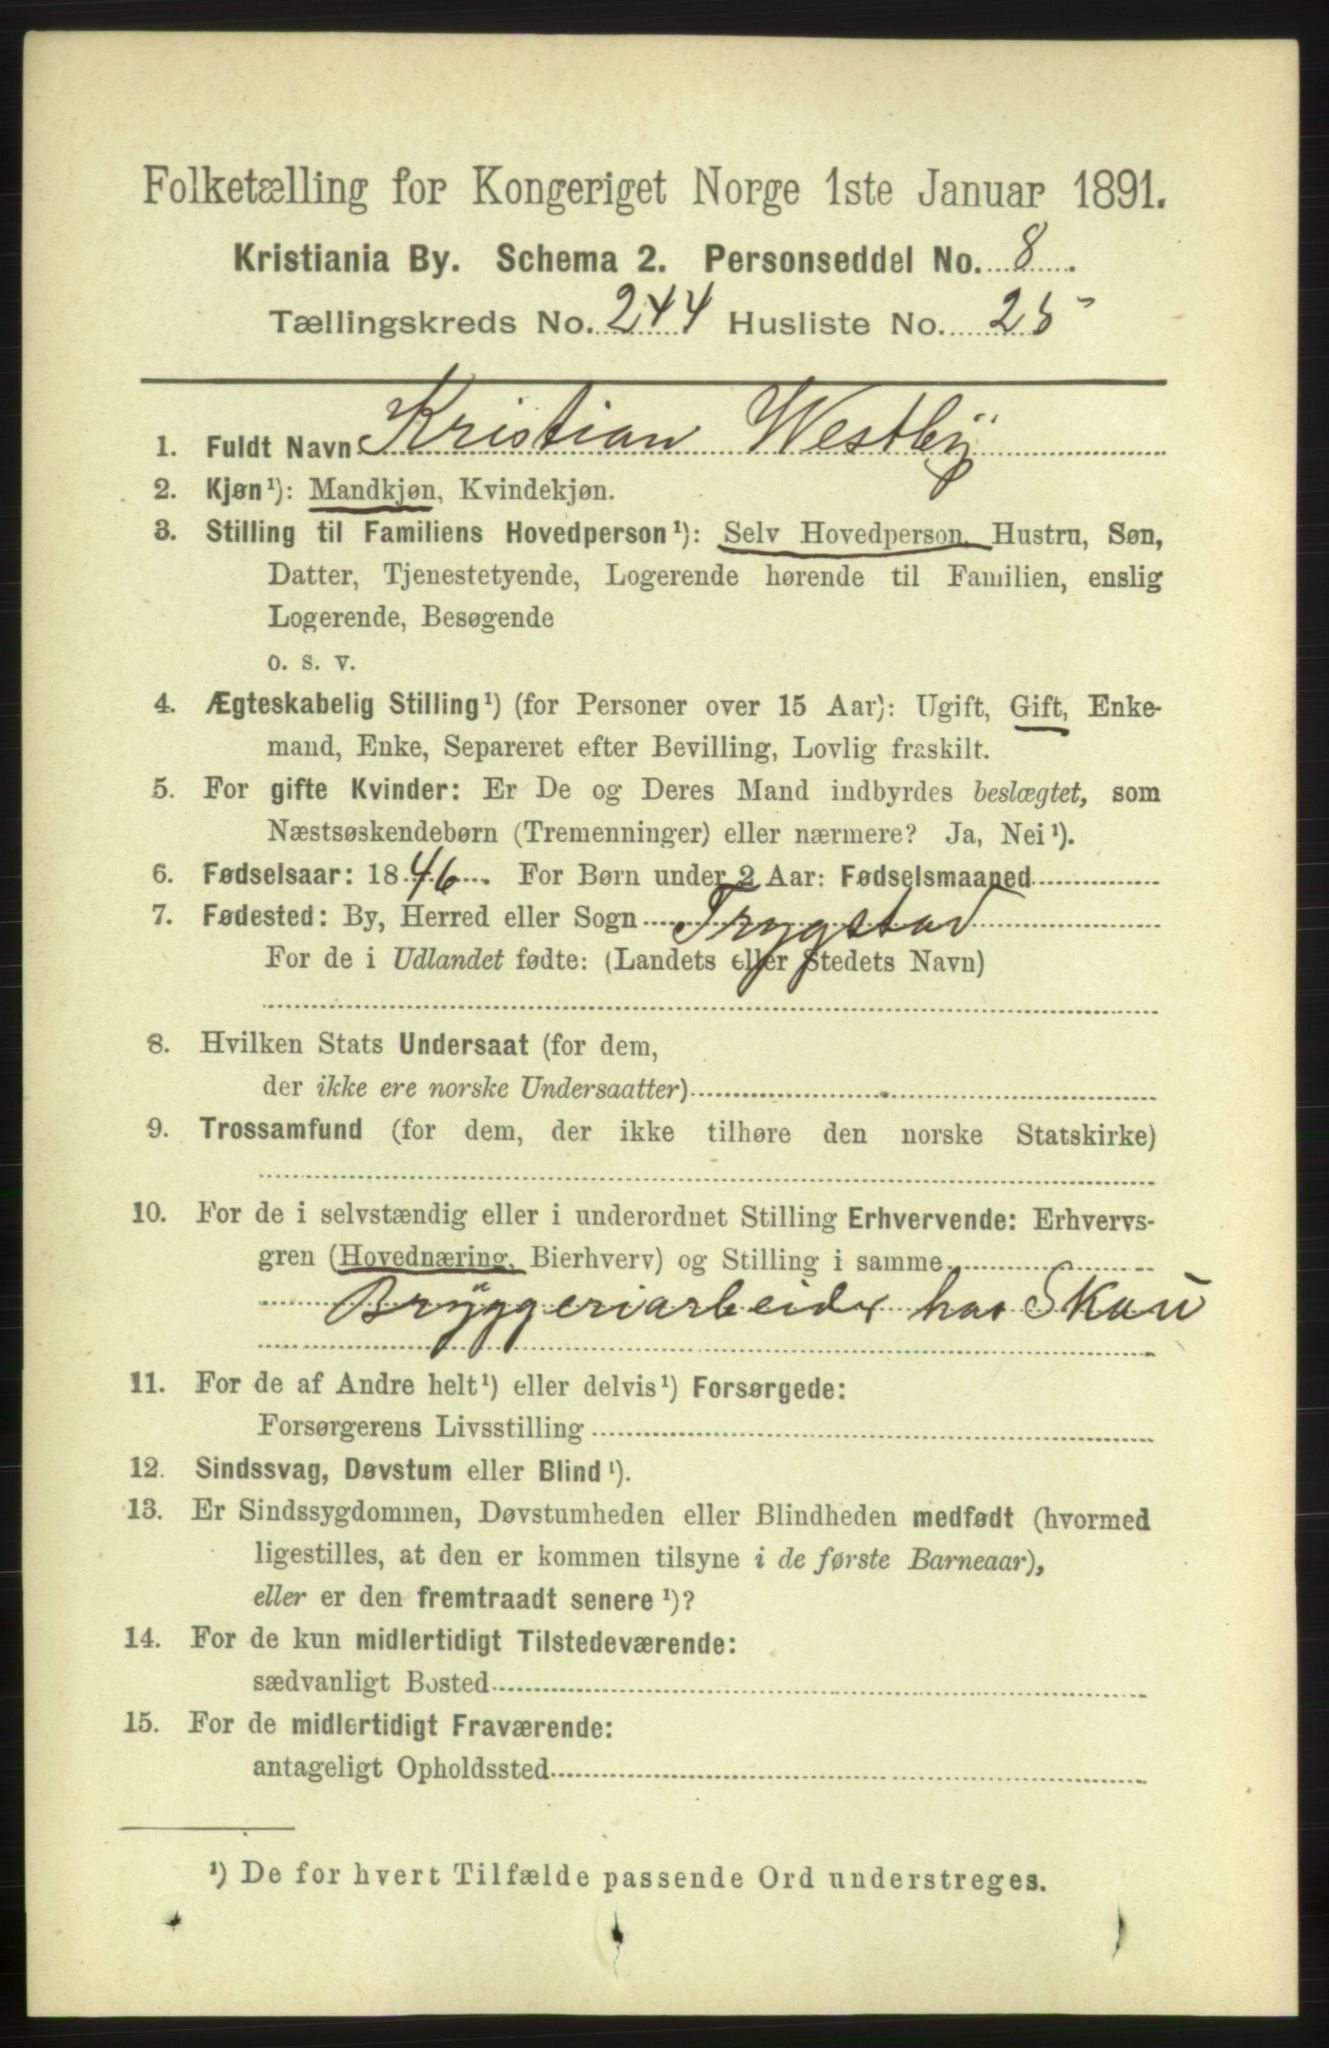 Folketælling for Kongeriget Norge 1ste Januar 1891.
Kristiania By. Schema 2. Personseddel No. 8.
Tællingskreds No. 244 Husliste No. 25
1. Fuldt Navn Kristian Westby
2. Kjøn¹): Mandkjøn, Kvindekjøn.
3. Stilling til Familiens Hovedperson¹): Selv Hovedperson, Hustru, Søn,
Datter, Tjenestetyende, Logerende hørende til Familien, enslig
Logerende, Besøgende
o. s. v.
4. Ægteskabelig Stilling¹) (for Personer over 15 Aar): Ugift, Gift, Enke-
mand, Enke, Separeret efter Bevilling, Lovlig fraskilt.
5. For gifte Kvinder: Er De og Deres Mand indbyrdes beslægtet, som
Næstsøskendebørn (Tremenninger) eller nærmere? Ja, Nei¹).
6. Fødselsaar: 1846. For Børn under 2 Aar: Fødselsmaaned
7. Fødested: By, Herred eller Sogn Trygstad
For de i Udlandet fødte: (Landets eller Stedets Navn)
8. Hvilken Stats Undersaat (for dem,
der ikke ere norske Undersaatter)
9. Trossamfund (for dem, der ikke tilhøre den norske Statskirke)
10. For de i selvstændig eller i underordnet Stilling Erhvervende: Erhvervs-
gren (Hovednæring, Bierhverv) og Stilling i samme
Bryggeriarbeider hos Skou
11. For de af Andre helt¹) eller delvis¹) Forsørgede:
Forsørgerens Livsstilling
12. Sindssvag, Døvstum eller Blind¹).
13. Er Sindssygdommen, Døvstumheden eller Blindheden medfødt (hvormed
ligestilles, at den er kommen tilsyne i de første Barneaar),
eller er den fremtraadt senere¹)?
14. For de kun midlertidigt Tilstedeværende:
sædvanligt Bosted
15. For de midlertidigt Fraværende:
antageligt Opholdssted
¹) De for hvert Tilfælde passende Ord understreges.